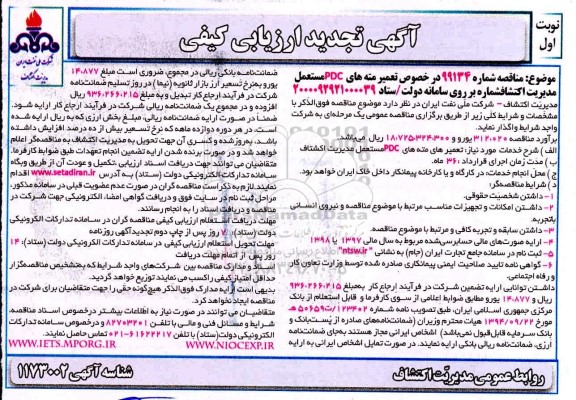 نوبت
اول
آگهی تجدید ارزیابی کیفی
شرکت ملی نفت ایران
مدیریت اکتشاف
موضوع: مناقصه شماره ۹۹۱۳۴ در خصوص تعمیر مته های PDC مستعمل
مدیریت اکتشاف شماره بر روی سامانه دولت/ستاد ۲۰۰۰۰۹۲۹۲۱۰۰۰۰۳۹
مدیریت اکتشاف - شرکت ملّی نفت ایران در نظر دارد موضوع مناقصه فوق‌الذکر با
مشخصات و شرایط کلی زیر از طریق برگزاری مناقصه عمومی یک مرحله‌ای به شرکت
واجد شرایط واگذار نماید.
برآورد مناقصه ۳۱۲،۰۲۰ یورو و ۱۸،۷۲۵،۳۲۴،۳۰۰ ریال می‌باشد.
الف) شرح خدمات مورد نیاز: تعمیر های مته های PDC مستعمل مدیریت اکتشاف
ب) مدت زمان اجرای قرارداد: ۳۶۰ ماه.
ج) محل انجام خدمات: در کارگاه و یا کارخانه پیمانکار داخل خاک ایران خواهد بود.
د) شرایط مناقصه‌گر:
۱- داشتن شخصیت حقوقی.
۲- داشتن امکانات و تجهیزات مناسب مرتبط با موضوع مناقصه و نیروی انسانی
باتجربه.
۳- داشتن سابقه و تجربه کافی و مرتبط با موضوع مناقصه.
۴- ارایه صورت‌های مالی حسابرسی‌شده مربوط به سال مالی ۱۳۹۷ یا ۱۳۹۸
۵- ثبت نام در سامانه جامع تجارت ایران (جام) به نشانی "ntsw.ir"
۶- گواهی نامه تایید صلاحیت ایمنی پیمانکاری صادره شده توسط وزارت تعاون کار
و رفاه اجتماعی.
داشتن توانایی ارایه تضمین شرکت در فرآیند ارجاع کار به‌مبلغ ۹۳۶،۲۶۶،۲۱۵
ریال و ۱۴،۸۷۷ یورو مطابق ضوابط اعلامی از سوی کارفرما و قابل استعلام از بانک
مرکزی جمهوری اسلامی ایران، طبق تصویب نامه شماره ۱۲۳۴۰۲/ت۵۰۶۵۹هـ
مورخ ۱۳۹۴/۰۹/۲۲ هیات محترم وزیران (ضمانت‌نامه‌های صادره از پست‌بانک و
بانک سرمایه قابل‌قبول نمی‌باشد) اشخاص ایرانی مجاز هستند به‌جای ضمانت‌نامه
ارزی، ضمانت‌نامه ریالی بانکی ارایه نمایند. در صورت تمایل اشخاص ایرانی به ارایه
ضمانت‌نامه بانکی ریالی در مجموع، ضروری است مبلغ ۱۴،۸۷۷
یورو به‌نرخ تسعیر ارز بازار ثانویه (نیما) در روز تسلیم ضمانت‌نامه
شرکت در فرآیند ارجاع کار تبدیل و به مبلغ ۹۳۶،۲۶۶،۲۱۵ ریال
افزوده و در مجموع یک ضمانت‌نامه ریالی شرکت در فرآیند ارجاع کار ارایه شود.
ضمناً در صورت ارایه ضمانت‌نامه ریالی، مبلغ بخش ارزی که به ریال ارایه شده
است، در هر دوره دوازده ماهه که نرخ تسعیر بیش از ده درصد افزایش داشته
باشد، به‌روز شده و کسری آن جهت تحویل به مدیریت اکتشاف به مناقصه‌گر اعلام
خواهد شد و در صورت برنده شدن ارایه تضمین انجام تعهدات طبق ضوابط کارفرما.
متقاضیان می توانند جهت دریافت اسناد ارزیابی تکمیل و عودت آن از طریق وبگاه
سامانه تدارکات الکترونیکی دولت (ستاد) به آدرس www.setadiran.ir اقدام
نمایند. لازم به ذکر است مناقصه گران در صورت عدم عضویت قبلی در سامانه مذکور،
مراحل ثبت نام در سایت فوق و دریافت گواهی امضاء الکترونیکی جهت شرکت در
مناقصه و دریافت اسناد را به انجام رسانند.
مهلت دریافت استعلام ارزیابی کیفی مناقصه گران در سامانه تدارکات الکترونیکی
دولت (ستاد): ۷ روز پس از چاپ دوم تجدیدآگهی روزنامه
مهلت تحویل استعلام ارزیابی کیفی در سامانه تدارکات الکترونیکی دولت (ستاد): ۱۴
روز پس از اتمام مهلت دریافت
اسناد و مدارک مناقصه بین شرکت‌های واجد شرایط که به‌تشخیص مناقصه‌گزار
حداقل امتیاز کیفی را کسب می نمایند توزیع خواهد گردید.
بدیهی است ارایه مدارک فوق‌الذکر هیچ‌گونه حقی را جهت متقاضیان برای شرکت در
مناقصه ایجاد نخواهد کرد.
متقاضیان می توانند در صورت نیاز به اطلاعات بیشتر درخصوص اسناد مناقصه،
شرایط و مسائل فنی و مالی با تلفن ۸۲۷۰۳۲۰۱ و درخصوص سامانه تدارکات
الکترونیکی دولت (ستاد) با تلفن ۶۱۶۲۲۲۱۷-۰۲۱ تماس حاصل نمایند.
WWW.IETS.MPORG.IR WWW.NIOCEXP.IR
روابط عمومی مدیریّت اکتشاف
شناسه آگهی ۱۱۷۳۰۰۲